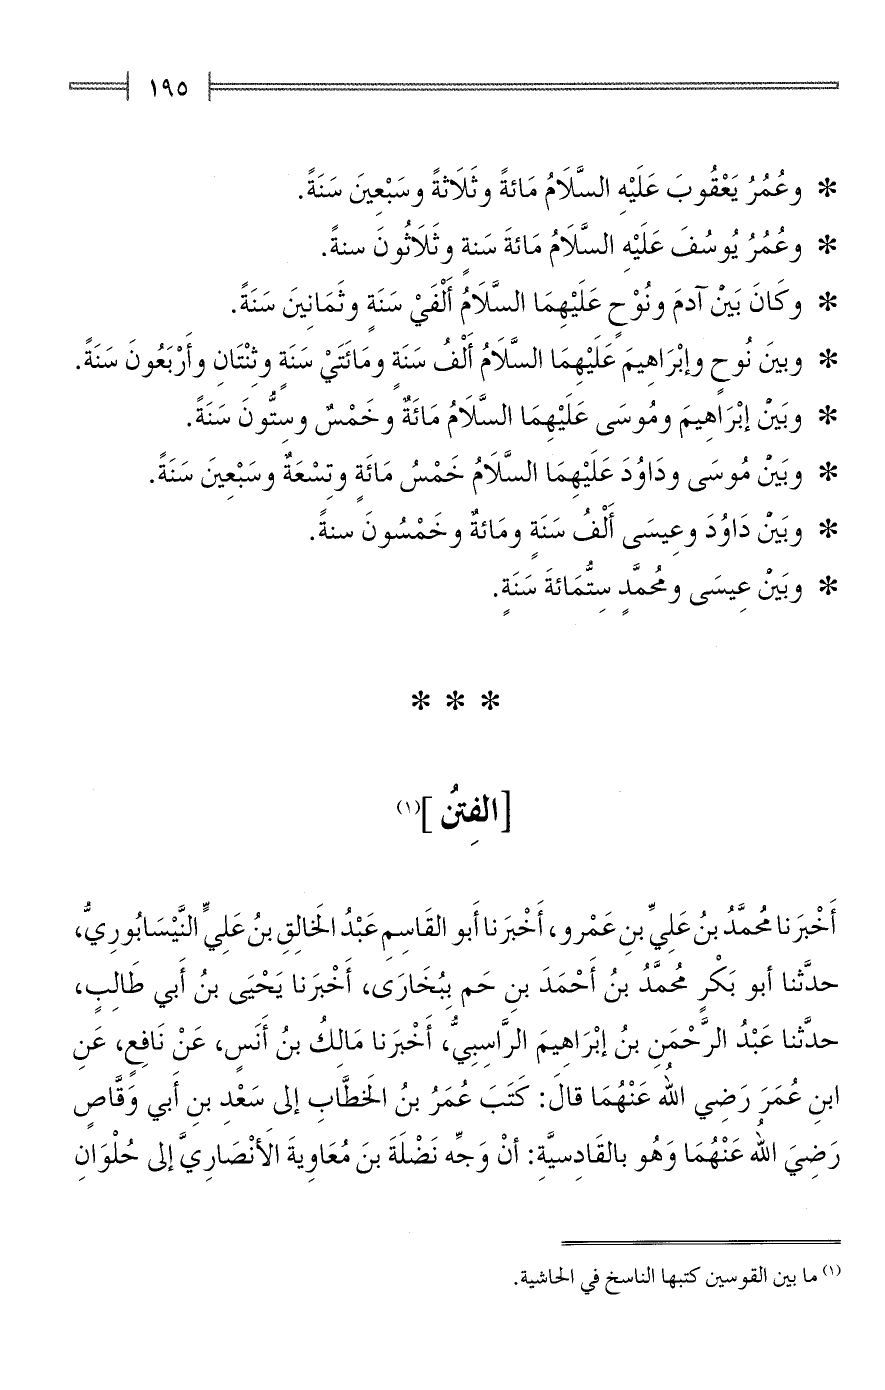 ١٩٥
* وعُمُرُ يَعْقُوبَ عَلَيْهِ السَّلَامُ مَائةً وثَلَاثةً وسَبْعِينَ سَنَةً.
* وعُمُرُ يُوسُفَ عَلَيْهِ السَّلَامُ مَائةَ سَنةٍ وثَلَاثُونَ سنةً.
* وكَانَ بَيْنَ آدمَ ونُوْحٍ عَلَيْهِمَا السَّلَامُ أَلْفَيْ سَنَةٍ وثَمَانِينَ سَنَةً.
* وبينَ نُوحٍ وإبْرَاهِيمَ عَلَيْهِمَا السَّلَامُ أَلْفُ سَنَةٍ ومَائَتَيْ سَنَةٍ وثِنْتَانِ وأَرْبَعُونَ سَنَةً.
* وبَيْنَ إبْرَاهِيمَ ومُوسَى عَلَيْهِمَا السَّلَامُ مَائَةٌ وخَمْسٌ وستُّونَ سَنَةً.
* وبَيْنَ مُوسَى ودَاوُدَ عَلَيْهِمَا السَّلَامُ خَمْسُ مَائَةٍ وتِسْعَةٌ وسَبْعِينَ سَنَةً.
* وبَيْنَ دَاوُدَ وعِيسَى أَلْفُ سَنَةٍ ومَائةٌ وخَمْسُونَ سنةً.
* وبَيْنَ عِيسَى ومُحمَّدٍ سِتُّمَائةَ سَنَةٍ.
* * *
[الفِتنُ](١)
أَخْبَرَنا مُحمَّدُ بنُ عَليِّ بنِ عَمْرو، أَخْبَرَنا أبو القَاسِمِ عَبْدُ الخَالِقِ بنُ عَليٍّ النَّيْسَابُوريُّ،
حدثَّنا أبو بَكْرٍ مُحمَّدُ بنُ أَحْمَدَ بنِ حَم بِبُخَارَى، أَخْبَرَنا يَحْيَى بنُ أَبي طَالِبٍ،
حدثَّنا عَبْدُ الرَّحْمَنِ بنُ إبْرَاهِيمَ الرَّاسِبيُّ، أَخْبَرَنا مَالِكُ بنُ أَنَسٍ، عَنْ نَافِعٍ، عَنِ
ابنِ عُمَرَ رَضِي اللهُ عَنْهُمَا قالَ: كَتَبَ عُمَرُ بنُ الخَطَّابِ إلى سَعْدِ بنِ أَبي وَقَّاصٍ
رَضِيَ اللهُ عَنْهُمَا وَهُو بالقَادِسِيَّةِ: أنْ وَجِّه نَضْلَةَ بنَ مُعَاوِيةَ الأَنْصَارِيَّ إلى حُلْوَانِ
(١) ما بين القوسين كتبها الناسخ في الحاشية.